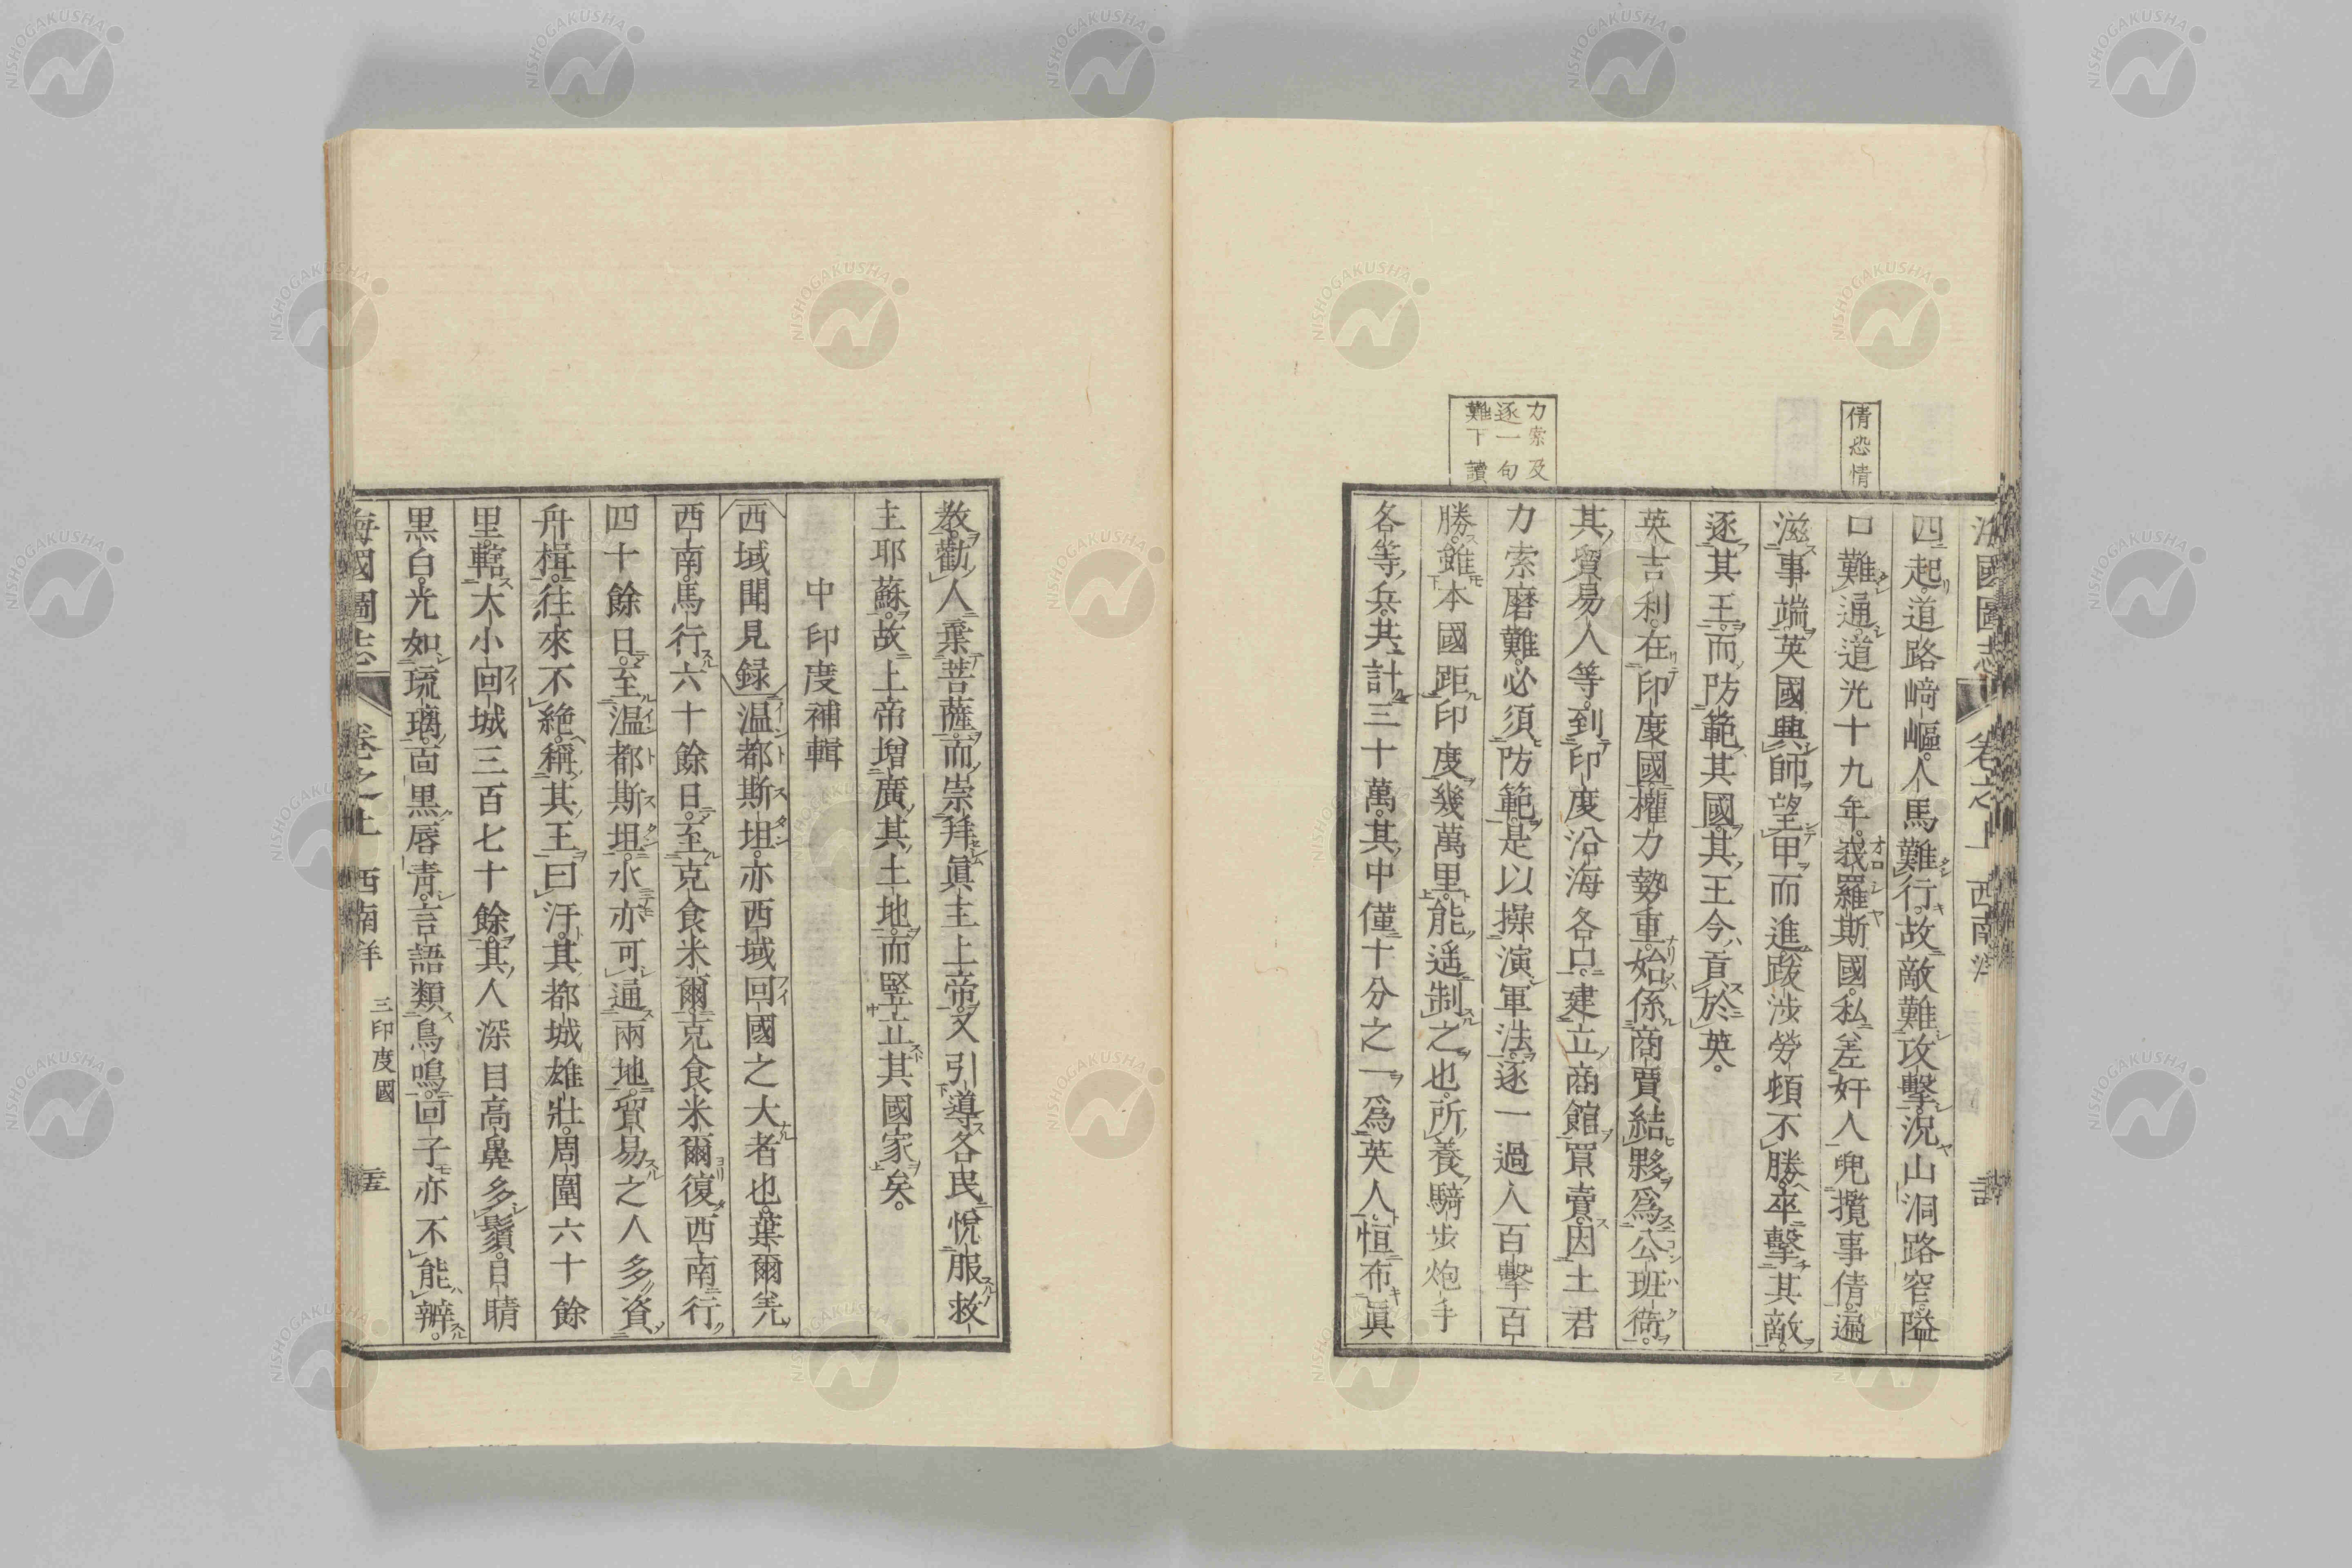 倩恐情
力索及
逐一句
難下讀
四起。道路﨑嶇。人馬難行。故敵難攻擊。況山洞路窄。隘
口難通。道光十九年。峩羅斯國。私差奸人。兜攬事倩。遍
滋事端。英國興師望甲而進。跋涉勞頓不勝。卒擊其敵。
逐其王。而防範其國。其王今貢於英。
英吉利。在印度國權力勢重。始係商賈結夥。為公班衙。
其貿易人等。到印度沿海各口。建立商館買賣。因土君
力索磨難。必須防範。是以操演軍法。逐一過入百擊百
勝。雖本國距印度幾萬里。能遥制之也。所養騎步炮手
各等兵。其計三十萬。其中僅十分之一為英人。恒布眞
教。勸人棄菩薩。而崇拜眞主上帝。又引導各民悅服救
主耶蘇。故上帝增廣其土地。而竪立其國家矣。
中印度補輯
西域聞見録 温都斯坦。亦西域回國之大者也。葉爾羌
西南。馬行六十餘日。至克食米爾。克食米爾復西南行
四十餘日。至温都斯坦。水亦可通兩地。貿易之人多資
舟楫。往來不絶。稱其王曰汗。其都城雄壯。周圍六十餘
里。轄大小回城三百七十餘。其人深目高鼻多鬚。目睛
黒白。光如琉璃。面黒唇青。言語類鳥鳴。回子亦不能辧。
海國圖志 卷之上 西南洋 三印度國
NISHOGAKUSHA